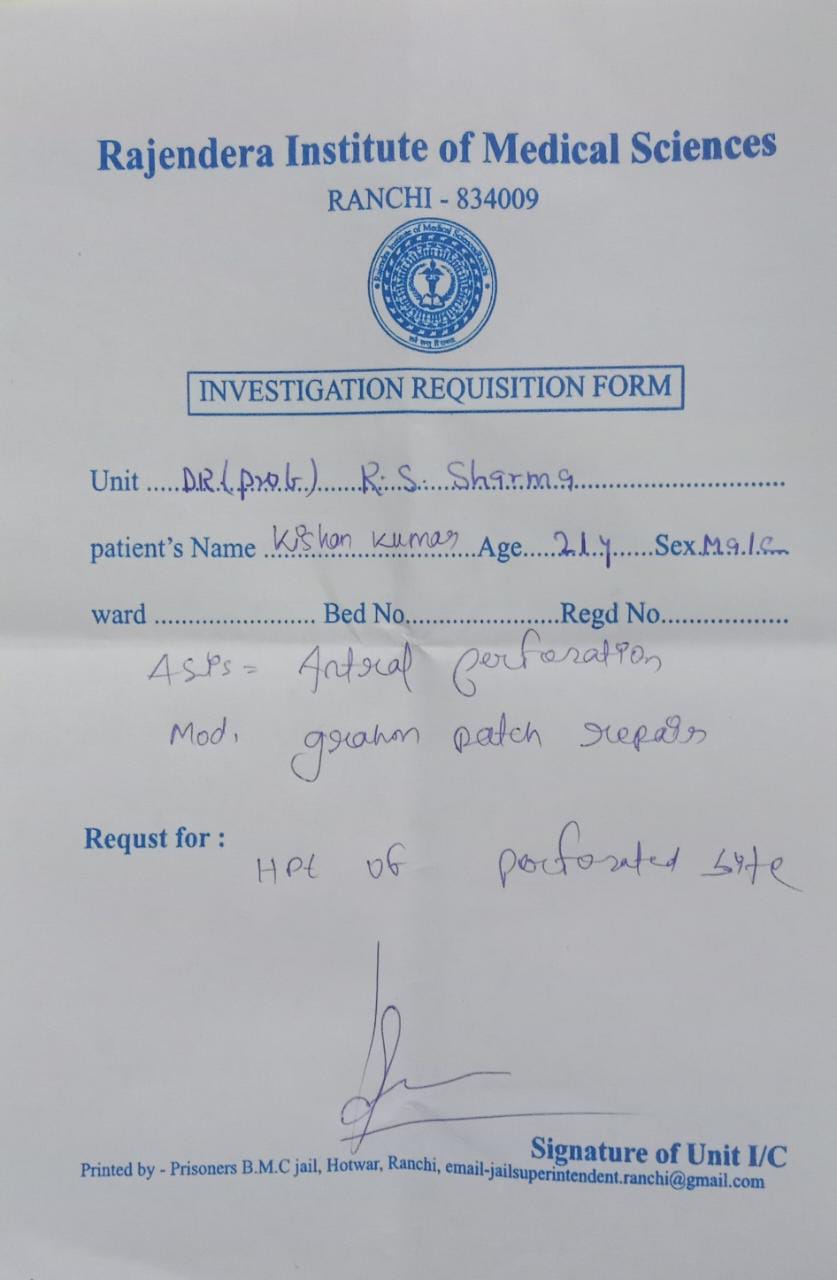 Rajendera Institute of Medical Sciences
RANCHI - 834009
Rajendra Institute of Medical Sciences Ranchi
INVESTIGATION REQUISITION FORM
Unit .....DR.(prof.)......R..S.....Sharma..............................
patient's Name ..Kishan Kumar....Age.....21.y......Sex.Male
ward ....................... Bed No.......................Regd No...................
Antral perforation
Mod. graham patch repair
Requst for :
HPE of perforated site
Signature of Unit I/C
Printed by - Prisoners B.M.C jail, Hotwar, Ranchi, email-jailsuperintendent.ranchi@gmail.com